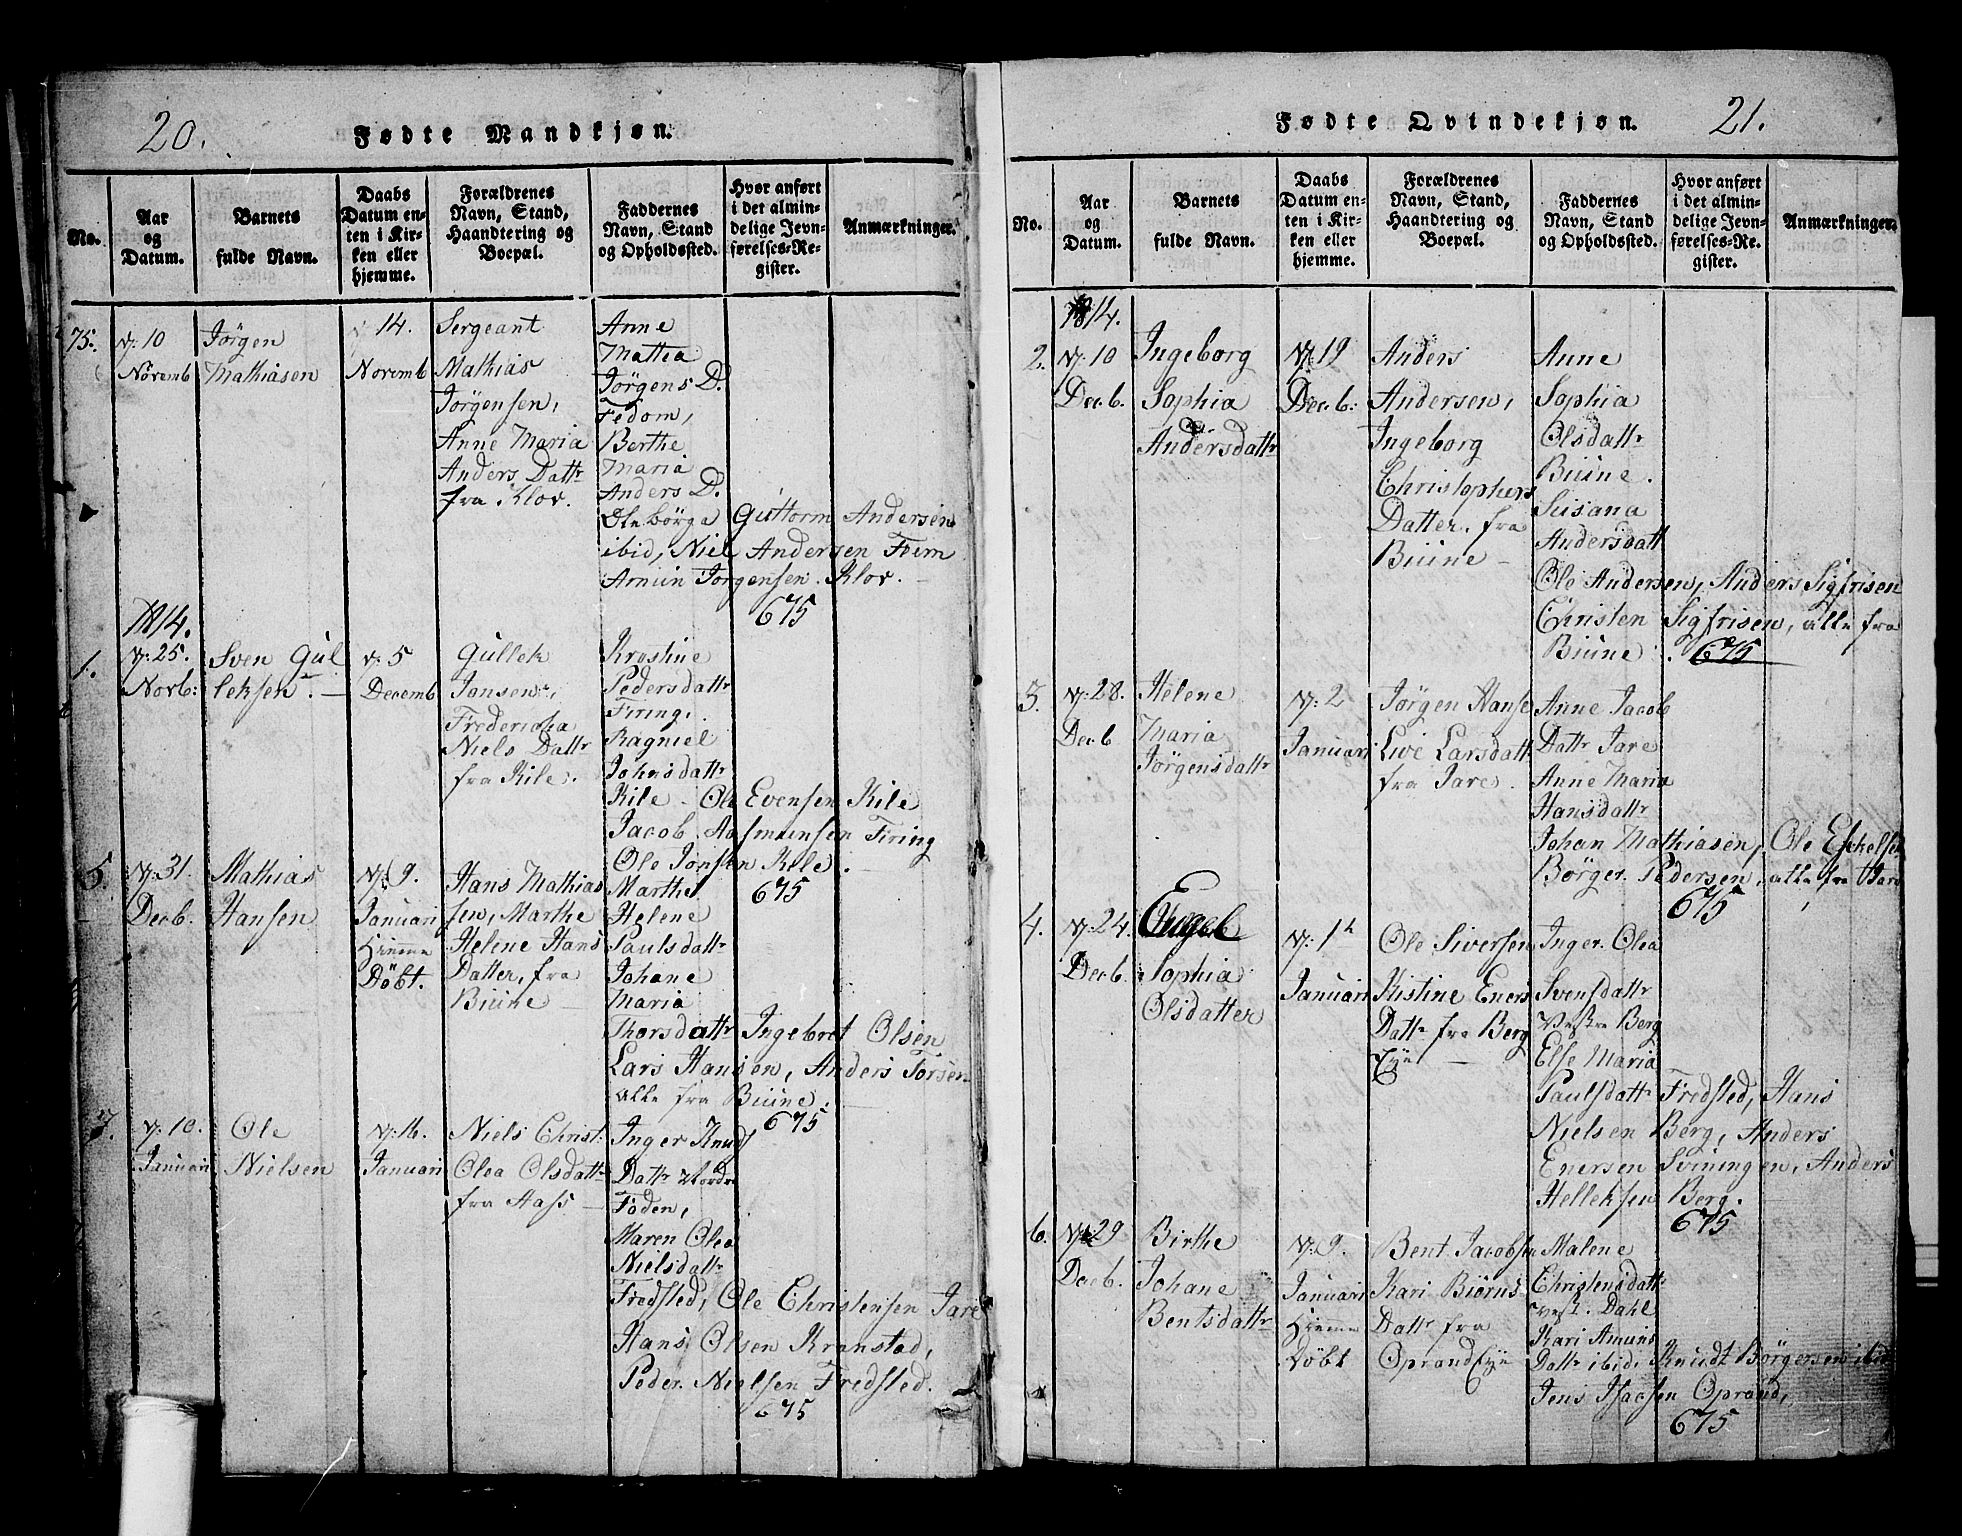 20.
Fødte Mandkjøn.
No.
Aar
og
Datum.
Barnets
fulde Navn.
Daabs
Datum en-
ten i Kir-
ken eller
hjemme.
Forældrenes
Navn, Stand,
Haandtering og
Boepæl.
Faddernes
Navn, Stand
og Opholdssted.
Hvor anført
i det almin-
delige Jevn-
førelses-Re-
gister.
Anmærkninger.
75.
N: 10
Novemb
Jörgen
Mathiasen
14.
Novemb
Sergeant
Mathias
Jörgensen,
Anne Maria
Anders Datt:
fra Klov.
Anne
Mattea
Jörgens D.
Fedom,
Berthe
Maria
Anders D.
Ole börga Guttorm Andersen
ibid, Niel Andersen Fem
Amun Jorgensen. Klov.
675
1814.
1.
N: 25.
Novb:
Sven Gül
leksen.
N: 5
Decemb
Güllek
Jonsen,
Fredericha
Niels Datt:
fra Kile.
Krostine
Pedersdatt:
Firing,
Ragniel
Johnsdatt:
Kile - Ole Evensen Kile
Jacob Aasmunsen Firing
Ole Jonsen Kile.
675
5.
N: 31.
Decb.
Mathias
Hansen
N: 9.
Januari
Hiemme
Döbt.
Hans Mathias
sen, Marthe
Helene Hans
Datter, fra
Büine
Marthe
Helene
Paulsdatt:
Johane
Maria
Thorsdatt: Ingebret Olsen
Lars Hansen, Anders Torsen
alle fra Büine.
675
7.
N: 10.
Januari
Ole
Nielsen
N: 16.
Januari
Niels Christ:
Olea Olsdatt:
fra Aass
Inger Knuds
Datt: Nordre
Foden,
Maren Olea
Nielsdatt:
Fredsted, Ole Christensen Jare
Hans Olsen Kranstad,
Peder Nielsen Fredsted.
675
Fødte Qvindekjøn.
21.
No.
Aar
og
Datum.
Barnets
fulde Navn.
Daabs
Datum en-
ten i Kir-
ken eller
hjemme.
Forældrenes
Navn, Stand,
Haandtering og
Boepæl.
Faddernes
Navn, Stand
og Opholdssted.
Hvor anført
i det almin-
delige Jevn-
førelses-Re-
gister.
Anmærkninger.
1814.
2.
N: 10
Decb.
Ingeborg
Sophia
Andersdatt:
N: 19
Decb:
Anders
Andersen,
Ingeborg
Christophers
Datter. fra
Büine
Anne
Sophia
Olsdatt:
Büine.
Susana
Andersdatt
Ole Andersen, Anders Sigfrisen
Christen Sigfrisen, alle fra
Büine. 675
3.
N: 28.
Decb
Helene
Maria
Jörgensdatt:
N: 2
Januari
Jörgen Hanse
Live Larsdatt:
fra Jare.
Anne Jacob
Datt: Jare
Anne Maria
Hansdatt:
Johan Mathiasen, Ole Eskelsen
Börger Pedersen, alle fra Jare
675
4.
N: 24.
Decb
Engel
Sophia
Olsdatter
N: 1
Januari
Ole Siversen
Kistine Eners
Datt: fra Berg
Eye
Inger Olea
Svensdatt:
Vestre Berg
Else Maria
Paulsdatt: Fredsted, Hans
Nielsen Berg, Anders
Enersen Sviningen, Anders
Helleksen Berg.
675
6.
N: 29
Decb.
Birthe
Johane
Bentsdatt:
N: 9.
Januari
Hiemme
Döbt
Bent Jacobsen
Kari Biörns
Datt: fra
Oprand Eye
Malene
Christensdatt:
vest. Dahl
Kari Amuns
Datt: ibid, Knudt Börgersen ibid
Jens Isacsen Oprand,
675